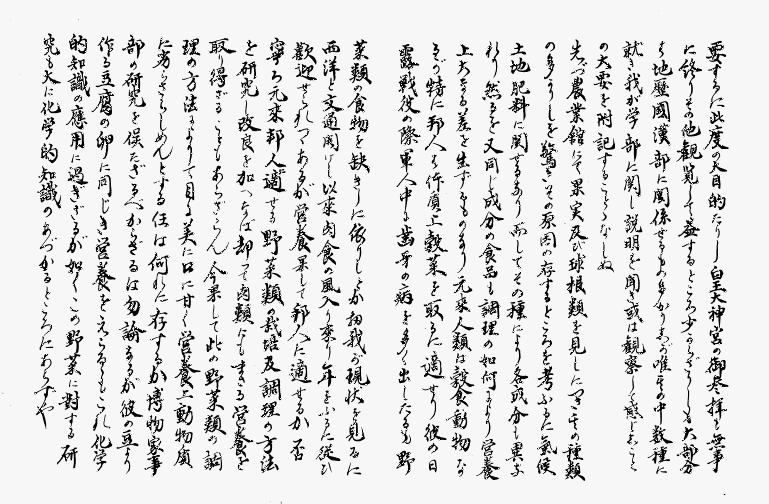 要するに此度の大目的たりし皇大神宮の御参拝も無事
に終りその他観覧して益するところ少からざりしも大部分
は地歴国漢部に関係せるもの多かりしが唯その中数種に
就き我が学部に関し説明を聞き或は観察して感じたること
の大要を附記することゝなしぬ
先づ農業館にて果実及び球根類を見しにその種類
の多きを驚きその原因の存するところを考ふるに気候
土地肥料に関するあり而してその種により各成分も異な
れり然るを又同じ成分の食品も調理の如何により営養
上大なる差を生ずるものなり元来人類は穀食動物な
るが特に邦人は体質上穀菜を取るに適せり彼の日
露戦役の際軍人中に歯牙の病を多く出したるも野
菜類の食物を缺きしに依りしとか初我が現状を見るに
西洋と交通開けし以来肉食の風入り来り年をふるに従ひ
歓迎せられつゝあるが営養果して邦人に適せるか否
寧ろ元来邦人に適せる野菜類の栽培及調理の方法
を研究し改良を加へなば却って肉類にもまさる営養を
取り得ざることもあらざらん今果して此の野菜類の調
理の方法によりて目に美に口に甘く営養上動物質
に劣らざらしめんとする任は何れに存するか博物家事
部の研究を俟たざるべからざるは勿論なるが彼の豆より
作る豆腐の卵に同じき営養をえらるゝもこれ化学
的知識の應用に過ぎざるが如くこの野菜に対する研
究も大に化学的知識のあづかるところにあらずや